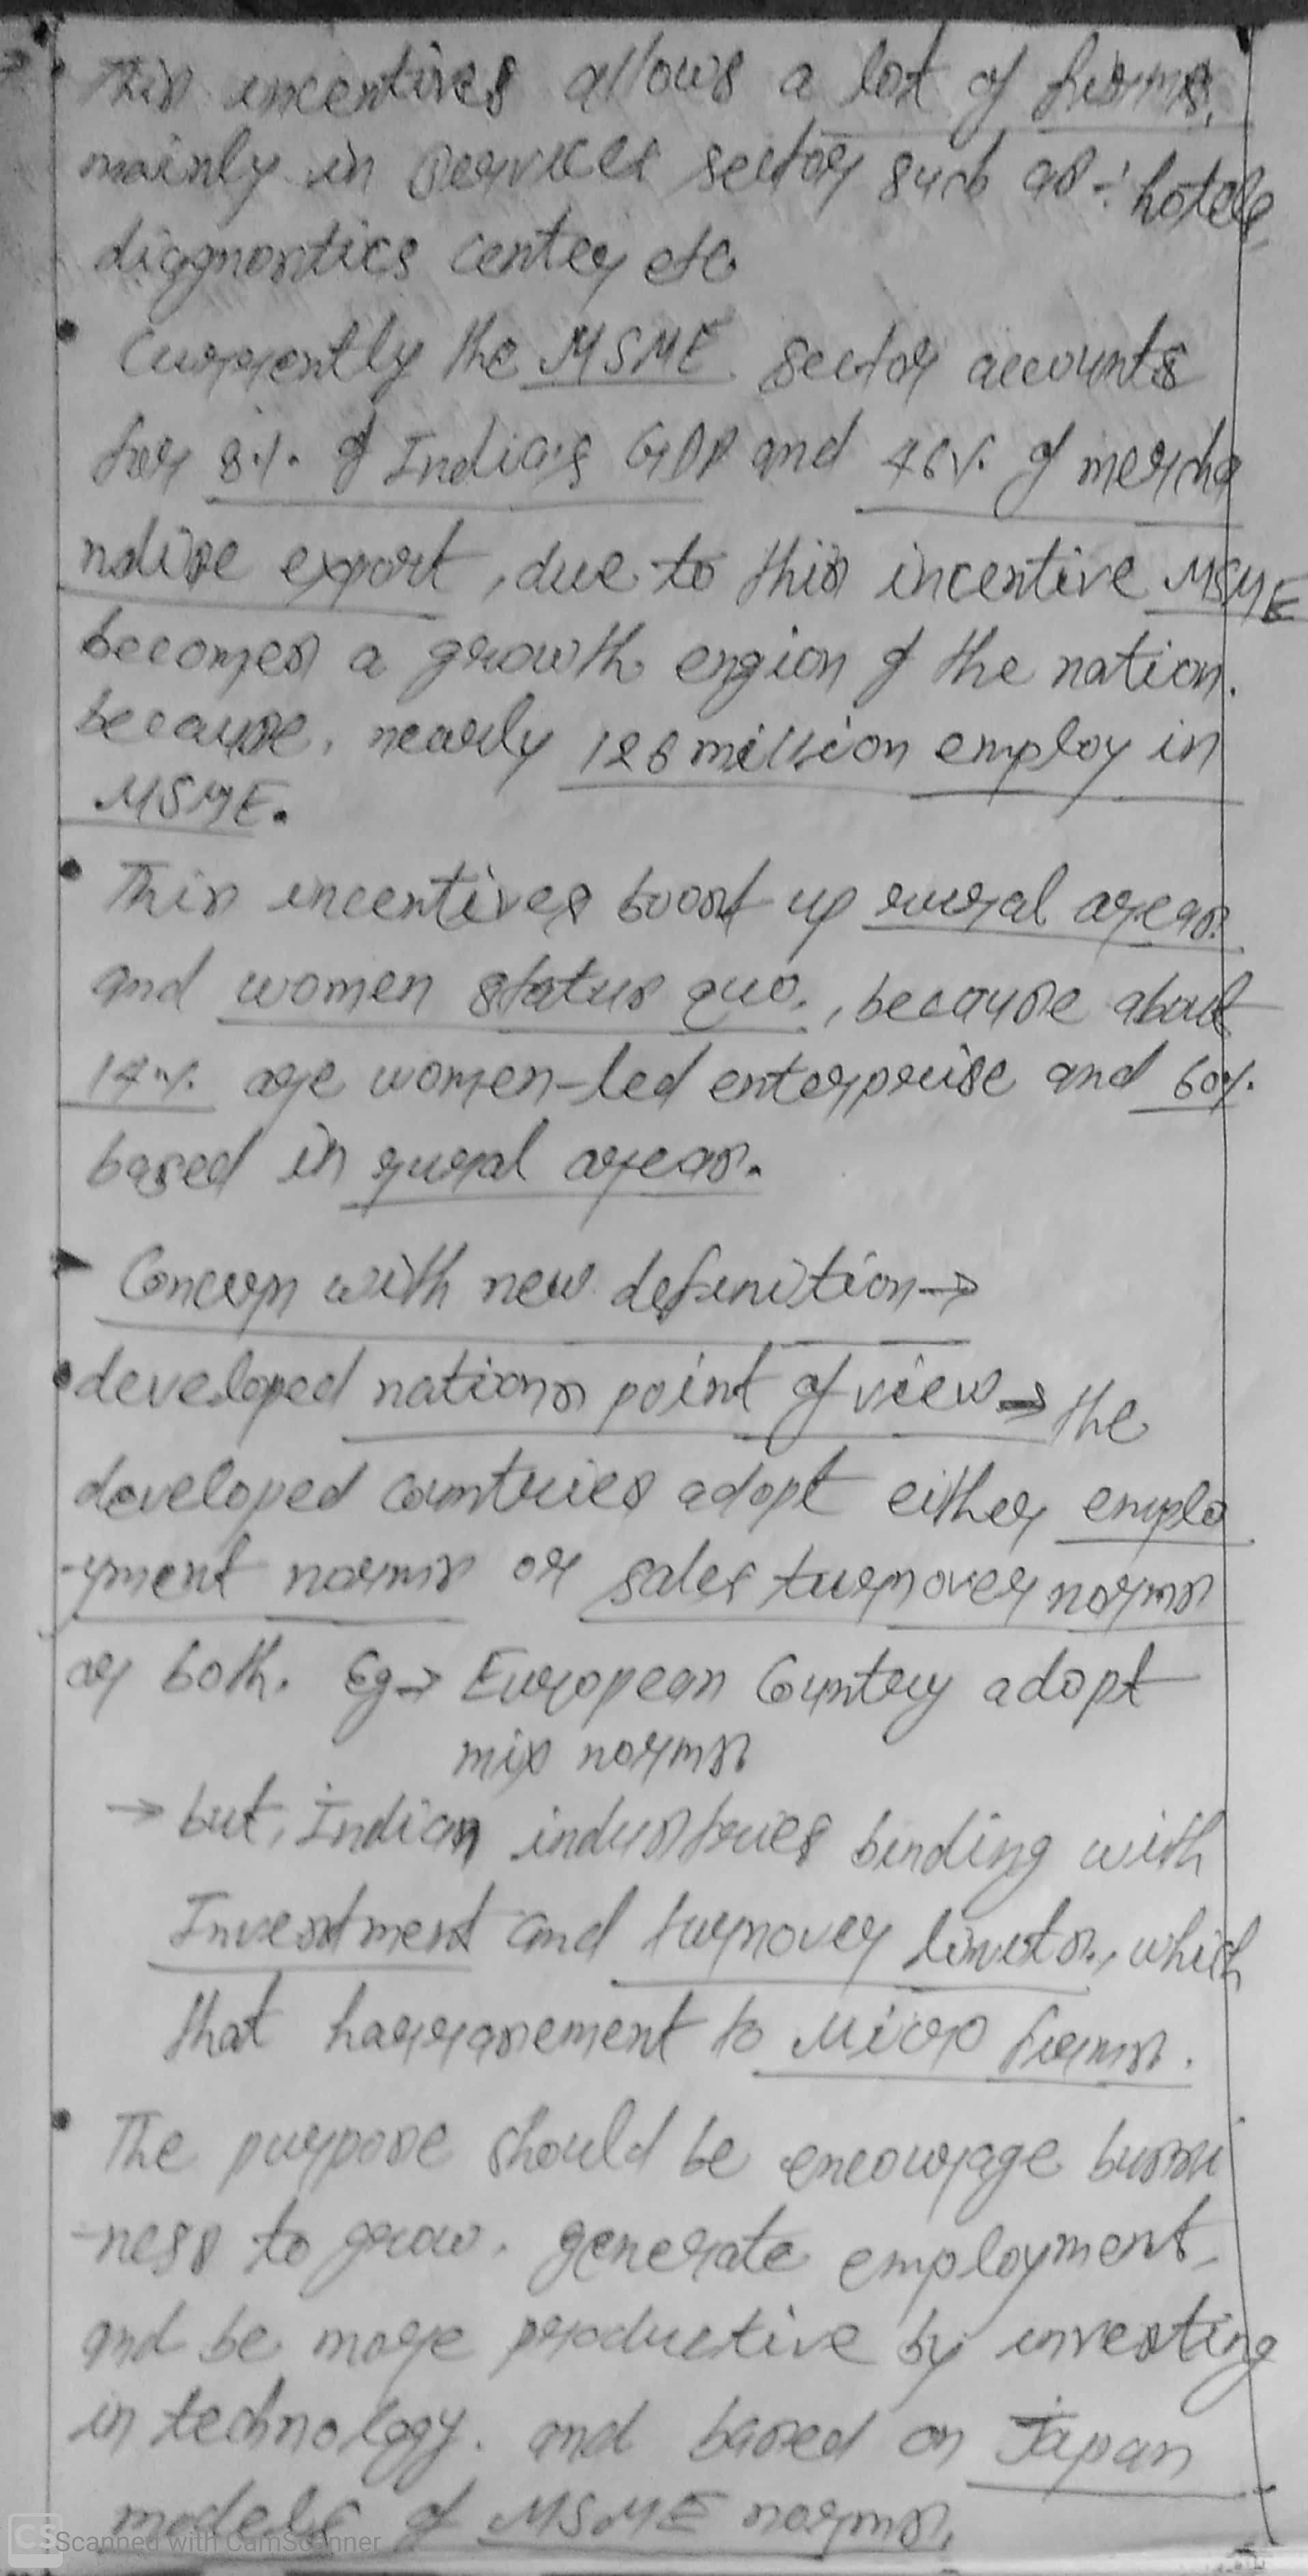 • This incentives allows a lot of firms,
mainly in services sector such as :- hotels,
diagnostics center etc
• Currently the MSME sector accounts
for 8%. of India's GDP and 46%. of mercha
ndise export, due to this incentive MSME
becomes a growth engion of the nation.
because, nearly 126 million employ in
MSME.
• This incentives boost up rural areas
and women status quo., because about
14%. are women-led enterprise and 60%.
based in rural areas.
Concern with new definition →
• developed nations point of view → the
developed countries adopt either emplo
-yment norms or sales turnover norms
or both. Eg → European Country adopt
mix norms
→ but, Indian industries binding with
Investment and turnover limits., which
that harrasement to Micro firms.
• The purpose should be encourage bussi
-ness to grow. generate employment,
and be more productive by investing
in technology. and based on Japan
models of MSME norms.
CS Scanned with CamScanner